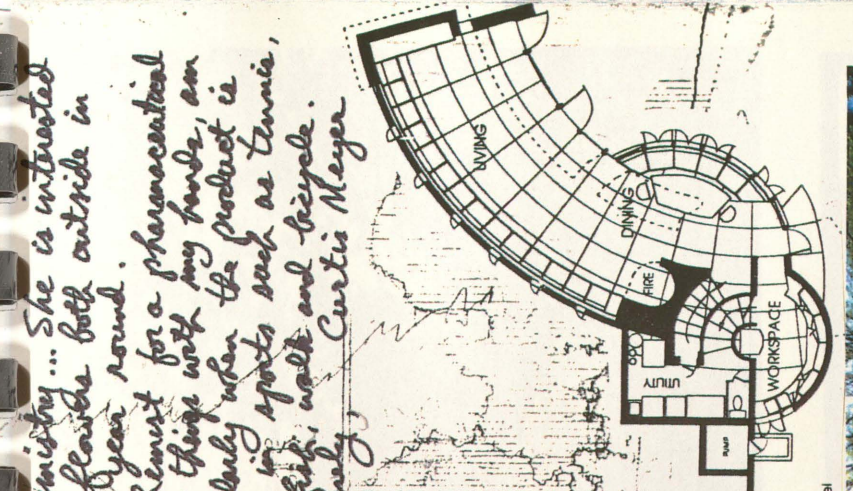 mistry... She is interested
flowers both outside in
year round.
emist for a pharmaceutical
things with my hands, am
larly when the product is
in sports such as tennis,
fish, walk and bicycle.
ely,
Curtis Meyer
LIVING
DINING
FIRE
UTILITY
WORKSPACE
PUMP
el